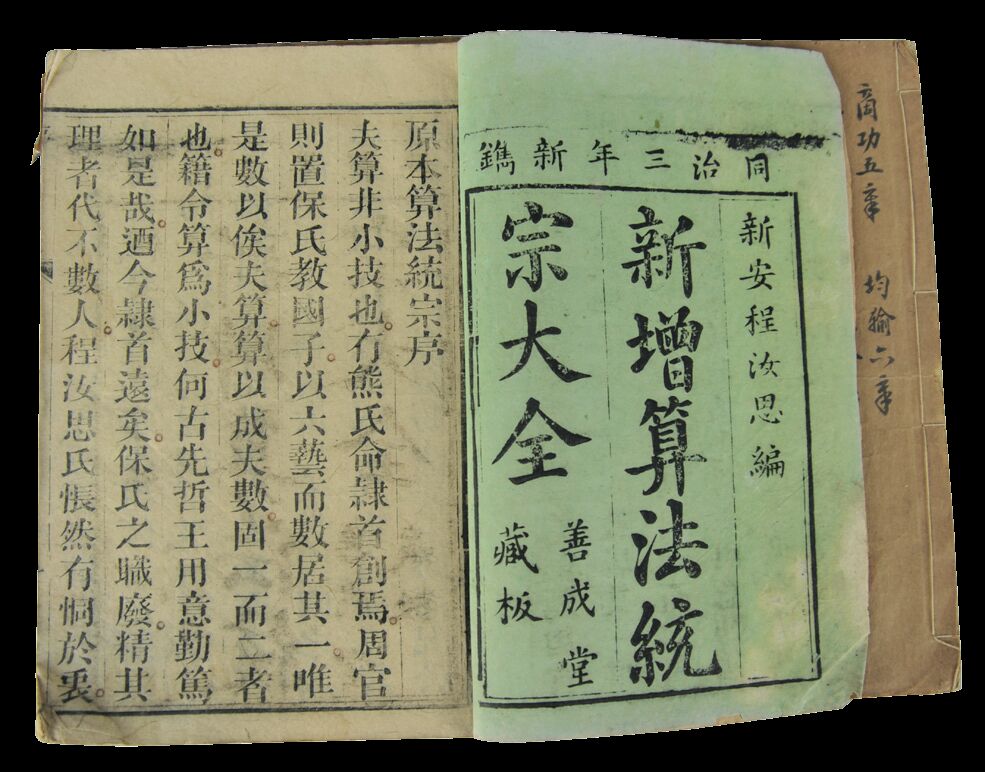 商功五章 均輸六章
同治三年新鐫
新安程汝思編
新增算法統
宗大全
善成堂
藏板
原本算法統宗序
夫算非小技也有熊氏命隸首創焉周官
則置保氏教國子以六藝而數居其一唯
是數以俟夫算算以成夫數固一而二者
也籍令算爲小技何古先哲王用意勤篤
如是哉迺今隸首遠矣保氏之職廢精其
理者代不數人程汝思氏悵然有恫於衷